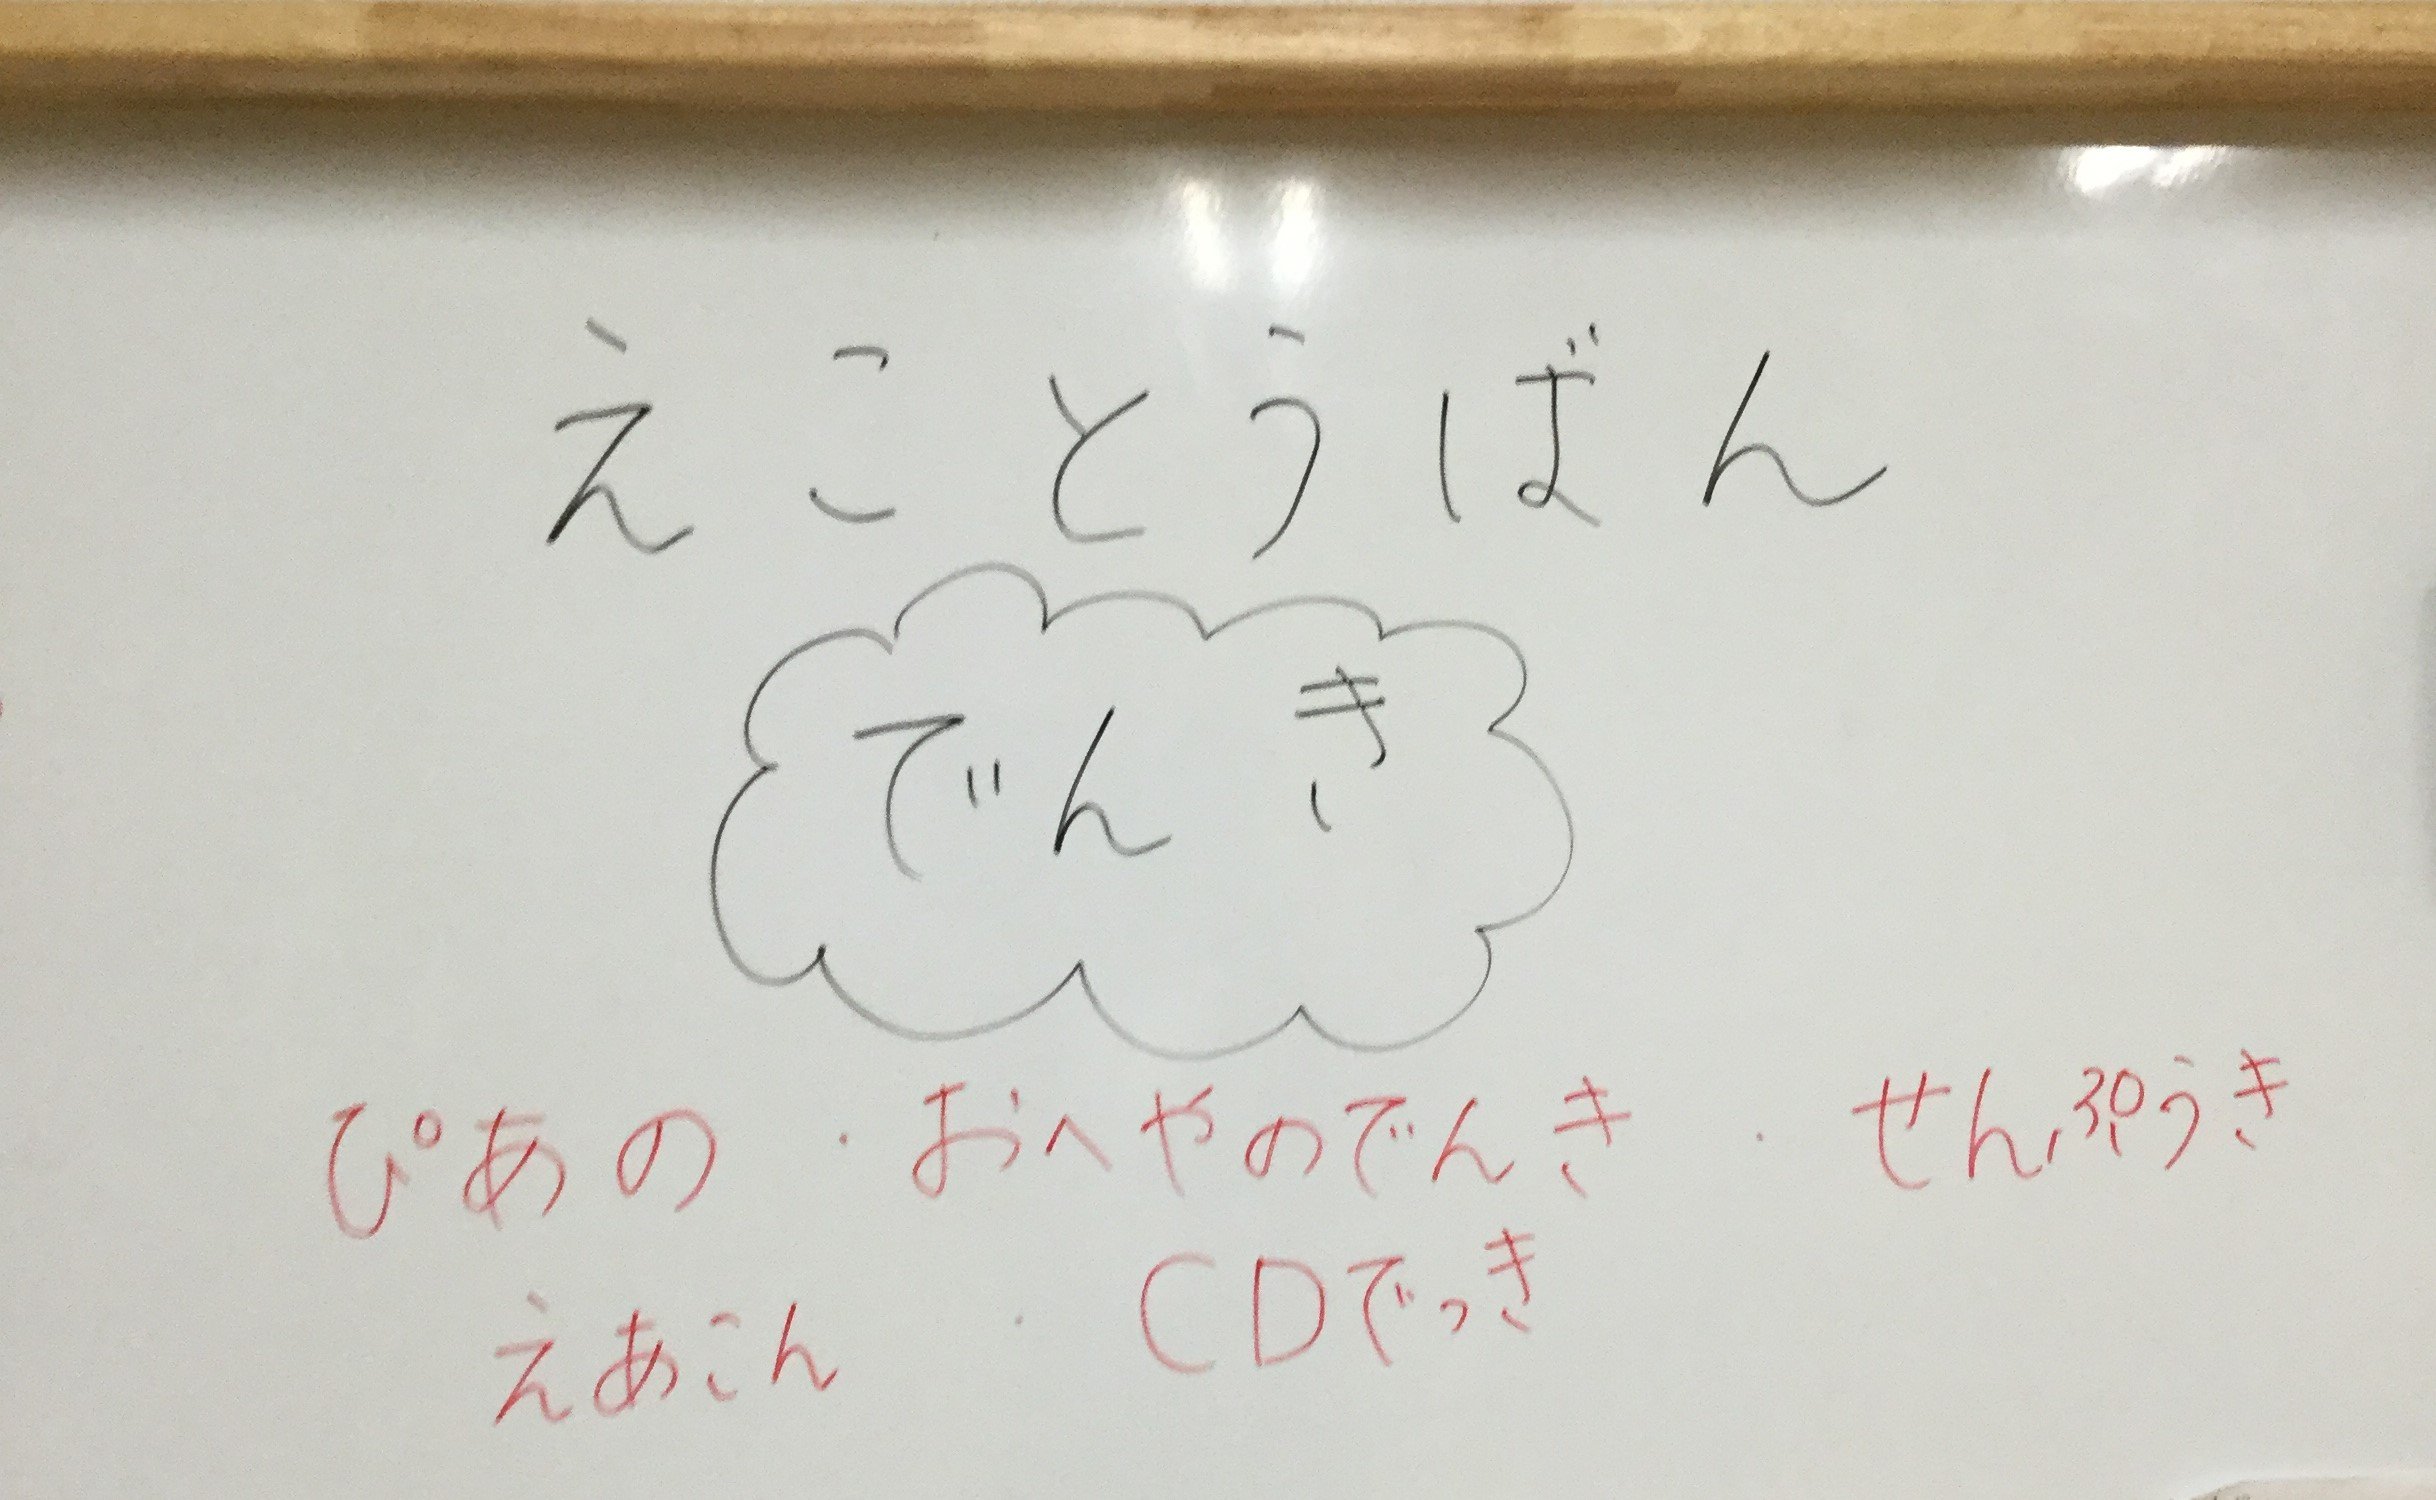 えことうばん
でんき
ぴあの・おへやのでんき・せんぷうき
えあこん・CDでっき